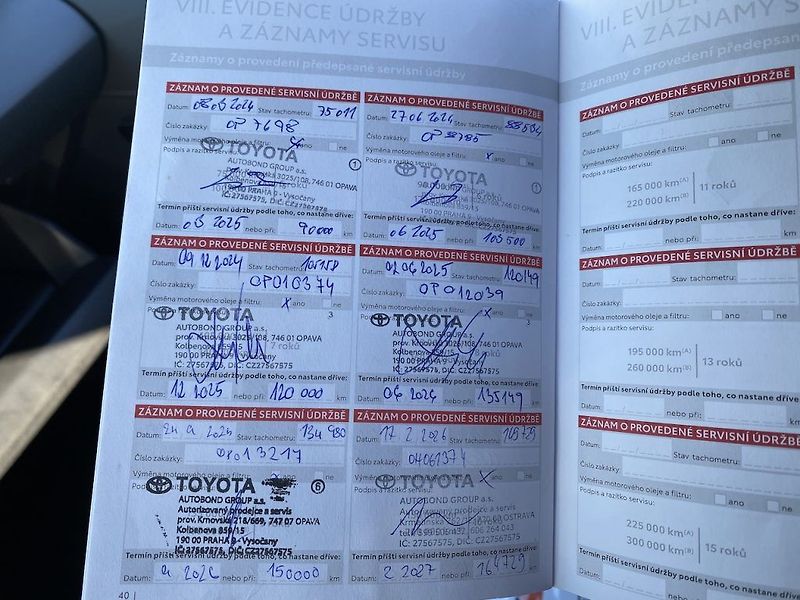 VIII. EVIDENCE ÚDRŽBY
A ZÁZNAMY SERVISU
Záznamy o provedení předepsané servisní údržby
ZÁZNAM O PROVEDENÉ SERVISNÍ ÚDRŽBĚ
Datum: 2024 Stav tachometru: 75011
Číslo zakázky: OP 7698
Výměna motorového oleje a filtru: ano ne
Podpis a razítko servisu:
TOYOTA
1
AUTOBOND GROUP a.s.
746 01 OPAVA
190 00 PRAHA 9 - Vysočany
IČ: 27567575, DIČ: CZ27567575
Termín příští servisní údržby podle toho, co nastane dříve:
Datum: 03 2025 nebo při: 90000 km
ZÁZNAM O PROVEDENÉ SERVISNÍ ÚDRŽBĚ
Datum: 27.06 2024 Stav tachometru:
Číslo zakázky:
Výměna motorového oleje a filtru: x ano ne
Podpis a razítko servisu:
TOYOTA
1
AUTOBOND GROUP a.s.
746 01 OPAVA
190 00 PRAHA 9 - Vysočany
IČ: 27567575, DIČ: CZ27567575
Termín příští servisní údržby podle toho, co nastane dříve:
Datum: 06 2025 nebo při: 103 500 km
ZÁZNAM O PROVEDENÉ SERVISNÍ ÚDRŽBĚ
Datum: 09 12 2024 Stav tachometru:
Číslo zakázky: OP010374
Výměna motorového oleje a filtru: x ano ne
TOYOTA
3
AUTOBOND GROUP a.s.
prov. Krnovská 3025/108, 746 01 OPAVA
Kolbenova 859/15
190 00 PRAHA 9 - Vysočany
IČ: 27567575, DIČ: CZ27567575
Termín příští servisní údržby podle toho, co nastane dříve:
Datum: 12 2025 nebo při: 120 000 km
ZÁZNAM O PROVEDENÉ SERVISNÍ ÚDRŽBĚ
Datum: 02 06 2025 Stav tachometru: 120149
Číslo zakázky: OP012039
Výměna motorového oleje a filtru: x ano ne
TOYOTA
3
AUTOBOND GROUP a.s.
prov. Krnovská 3025/108, 746 01 OPAVA
Kolbenova 859/15
190 00 PRAHA 9 - Vysočany
IČ: 27567575, DIČ: CZ27567575
Termín příští servisní údržby podle toho, co nastane dříve:
Datum: nebo při: 135149 km
ZÁZNAM O PROVEDENÉ SERVISNÍ ÚDRŽBĚ
Datum: 9 2025 Stav tachometru: 134 980
Číslo zakázky: 013217
Výměna motorového oleje a filtru: ano ne
TOYOTA
6
AUTOBOND GROUP a.s.
Autorizovaný prodejce a servis
prov. Krnovská 218/669, 747 07 OPAVA
Kolbenova 859/15
190 00 PRAHA 9 - Vysočany
IČ: 27567575, DIČ: CZ27567575
Termín příští servisní údržby podle toho, co nastane dříve:
Datum: 9 2026 nebo při: 150000 km
ZÁZNAM O PROVEDENÉ SERVISNÍ ÚDRŽBĚ
Datum: 17 2 2026 Stav tachometru:
Číslo zakázky: 04061374
Výměna motorového oleje a filtru: x ano ne
TOYOTA
AUTOBOND GROUP a.s.
Autorizovaný prodejce a servis
OSTRAVA
IČ: 27567575, DIČ: CZ27567575
Termín příští servisní údržby podle toho, co nastane dříve:
Datum: 2 2027 nebo při: km
40
VIII. EVIDEN
A ZÁZNAMY S
Záznamy o provedení předepsané
ZÁZNAM O PROVEDENÉ SERVISNÍ ÚDRŽBĚ
Datum: Stav tachometru:
Číslo zakázky:
Výměna motorového oleje a filtru: ano ne
Podpis a razítko servisu:
165 000 km(A)
220 000 km(B)
11 roků
Termín příští servisní údržby podle toho, co nastane dříve:
Datum: nebo při: km
ZÁZNAM O PROVEDENÉ SERVISNÍ ÚDRŽBĚ
Datum: Stav tachometru:
Číslo zakázky:
Výměna motorového oleje a filtru: ano ne
Podpis a razítko servisu:
195 000 km(A)
260 000 km(B)
13 roků
Termín příští servisní údržby podle toho, co nastane dříve:
Datum: nebo při: km
ZÁZNAM O PROVEDENÉ SERVISNÍ ÚDRŽBĚ
Datum: Stav tachometru:
Číslo zakázky:
Výměna motorového oleje a filtru: ano ne
Podpis a razítko servisu:
225 000 km(A)
300 000 km(B)
15 roků
Termín příští servisní údržby podle toho, co nastane
Datum: nebo při: